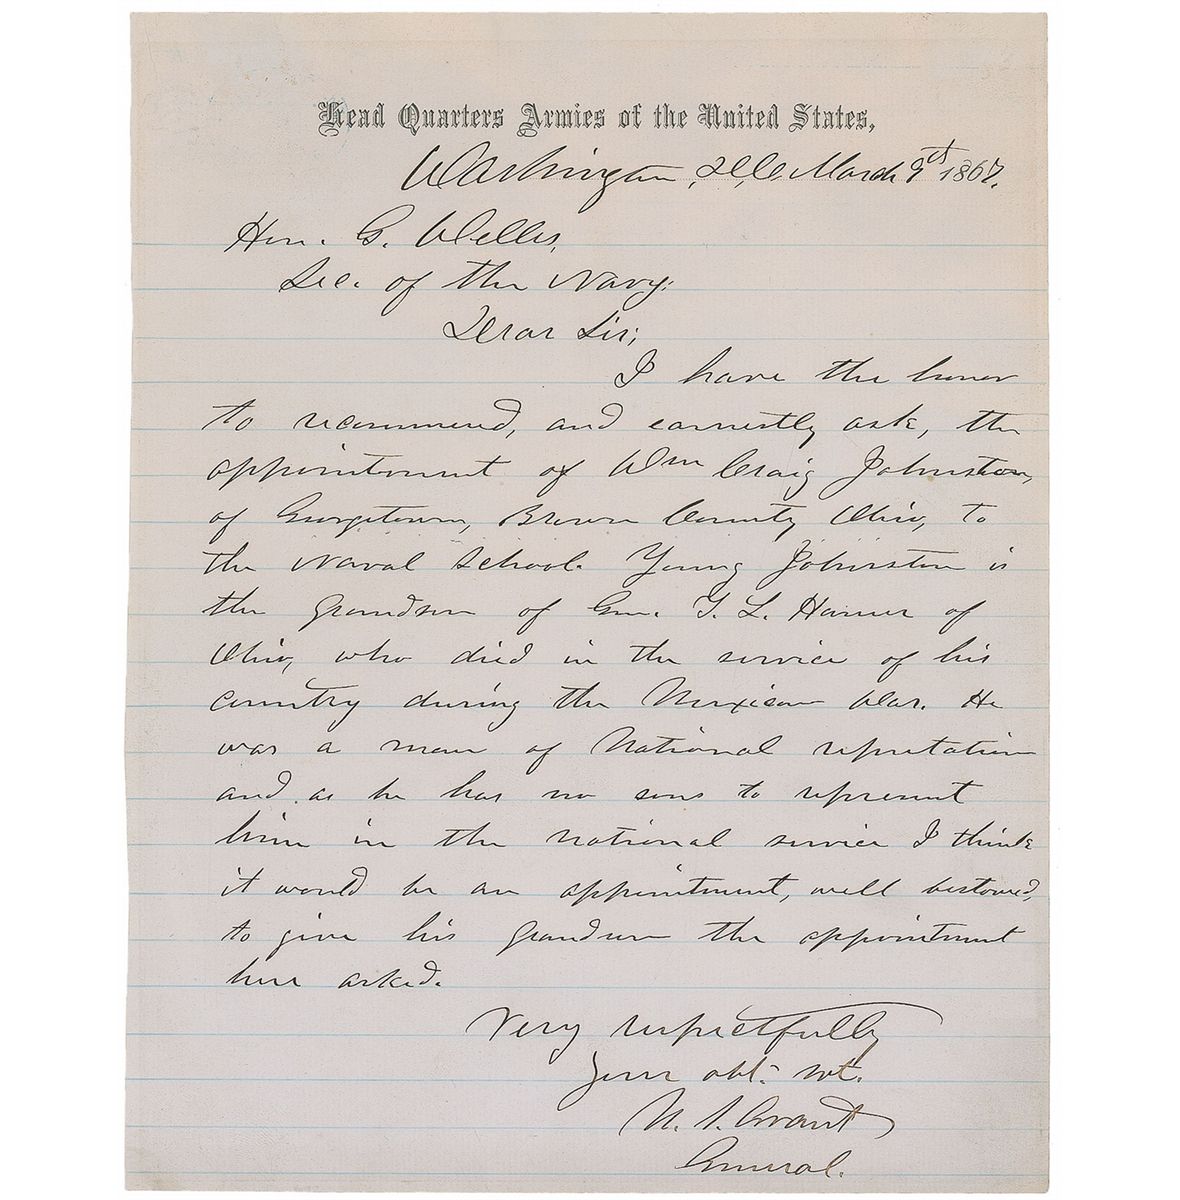 Head Quarters Armies of the United States,
Washington, D.C. March 9th 1867.
Hon. G. Welles,
Sec. of the Navy:
Dear Sir;
I have the honor
to recommend, and earnestly ask, the
appointment of Wm Craig Johnston,
of Georgetown, Brown County Ohio, to
the Naval School. Young Johnston is
the grandson of Gen. T. L. Hamer of
Ohio, who died in the service of his
country during the Mexican War. He
was a man of National reputation
and as he has no sons to represent
him in the national service I think
it would be an appointment, well bestowed,
to give his grandson the appointment
here asked.
Very respectfully
Your obt. svt.
U. S. Grant
General.